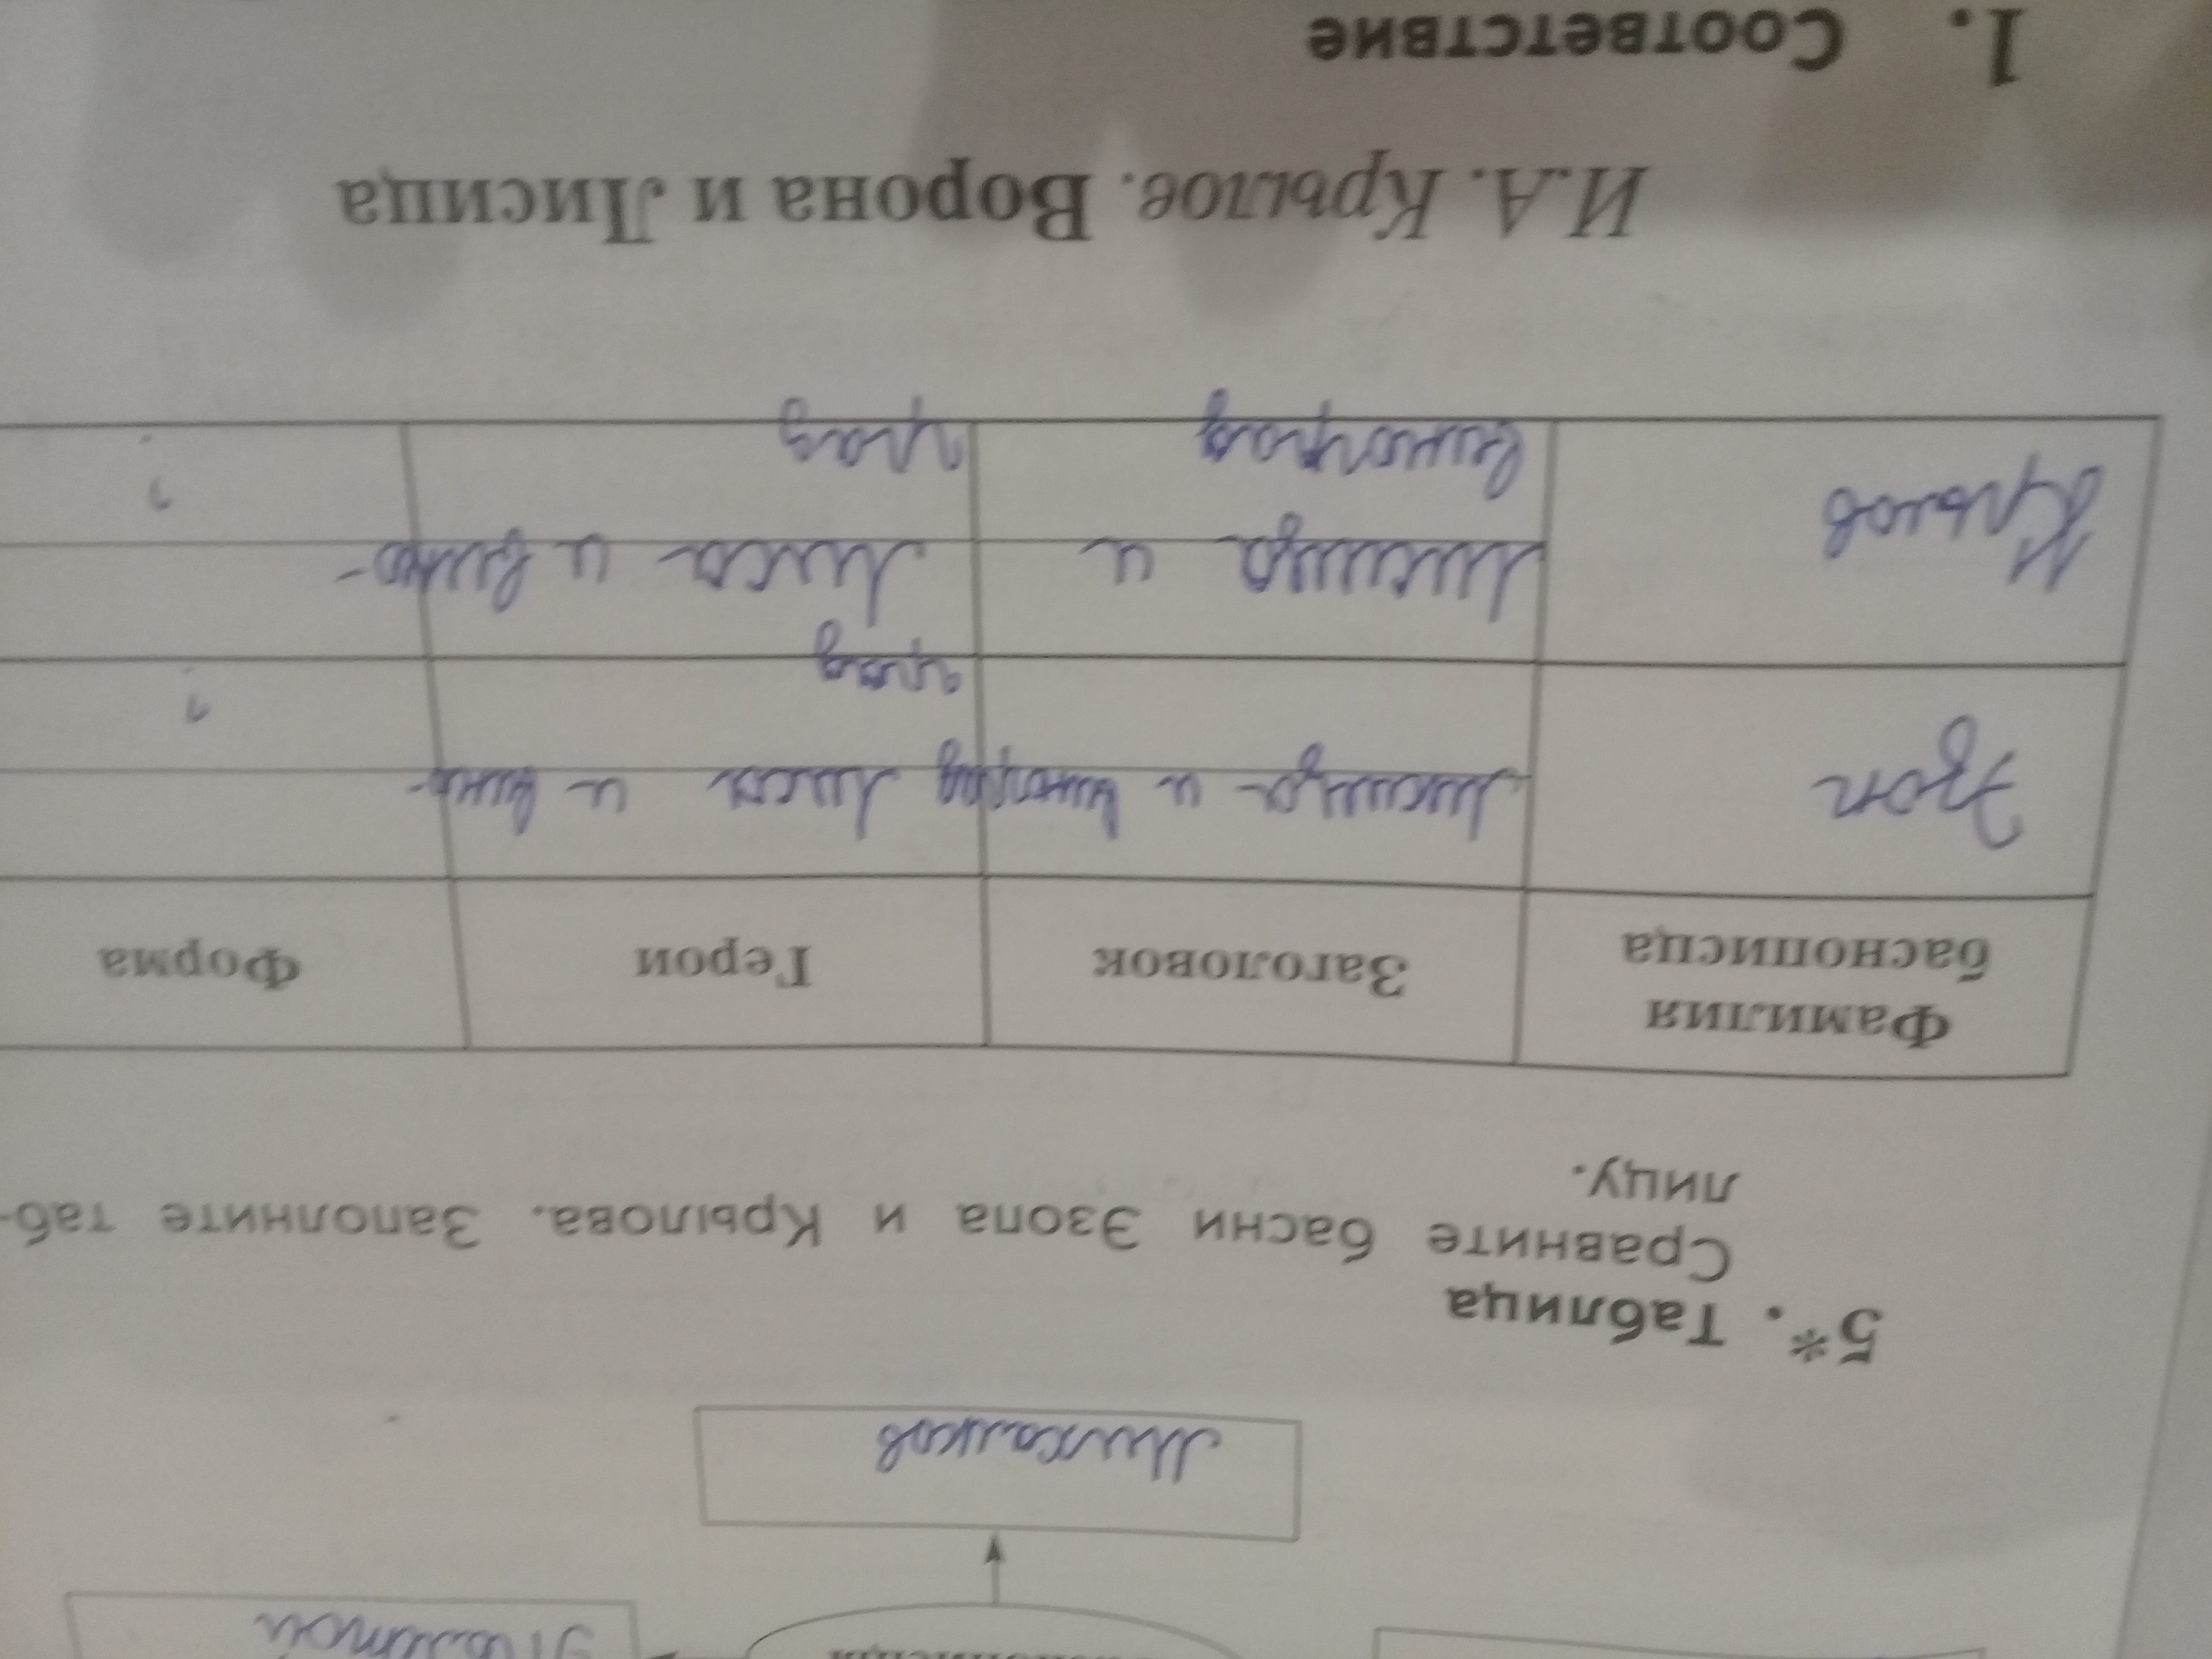 Толстой
Михалков
5*. Таблица
Сравните басни Эзопа и Крылова. Заполните таб-
лицу.
Фамилия баснописца Заголовок Герои Форма
Эзоп Лисица и виноград Лиса и вино-
град ?
Крылов Лисица и Лиса и вино-
виноград град ?
И.А. Крылов. Ворона и Лисица
1. Соответствие